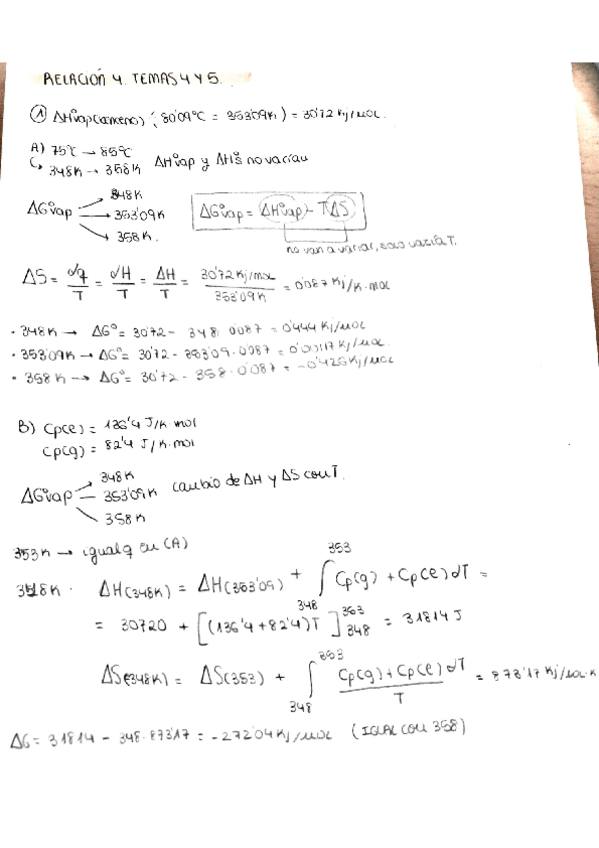 RELACIÓN 4. TEMAS 4 Y 5.
① ΔH°vap(benceno) (80'09°C = 353'09K) = 30'72 Kj/mol.
A) 75°C → 85°C
↳ 348K → 358K ΔH°vap y ΔH°s no varían
ΔG°vap → 348K
→ 353'09K
→ 358K.
ΔG°vap = ΔH°vap - TΔS
no van a variar, solo varía T.
ΔS = dq/T = dH/T = ΔH/T = 30'72 Kj/mol / 353'09K = 0'087 Kj/K·mol
· 348K → ΔG° = 30'72 - 348·0'087 = 0'444 Kj/mol
· 353'09K → ΔG° = 30'72 - 353'09·0'087 = 0'00117 Kj/mol
· 358K → ΔG° = 30'72 - 358·0'087 = -0'426 Kj/mol
B) Cp(e) = 136'4 J/K·mol
Cp(g) = 82'4 J/K·mol
ΔG°vap → 348K
→ 353'09K
→ 358K
cambio de ΔH y ΔS con T.
353K → igual q en (A)
348K · ΔH(348K) = ΔH(353'09) + ∫ 348 353 Cp(g) + Cp(e) dT =
= 30720 + [(136'4+82'4)T] 353 348 = 31814 J
ΔS(348K) = ΔS(353) + ∫ 348 353 Cp(g)+Cp(e) dT / T = 873'17 Kj/mol·K
ΔG = 31814 - 348·873'17 = -272'04 Kj/mol (IGAL CON 358)